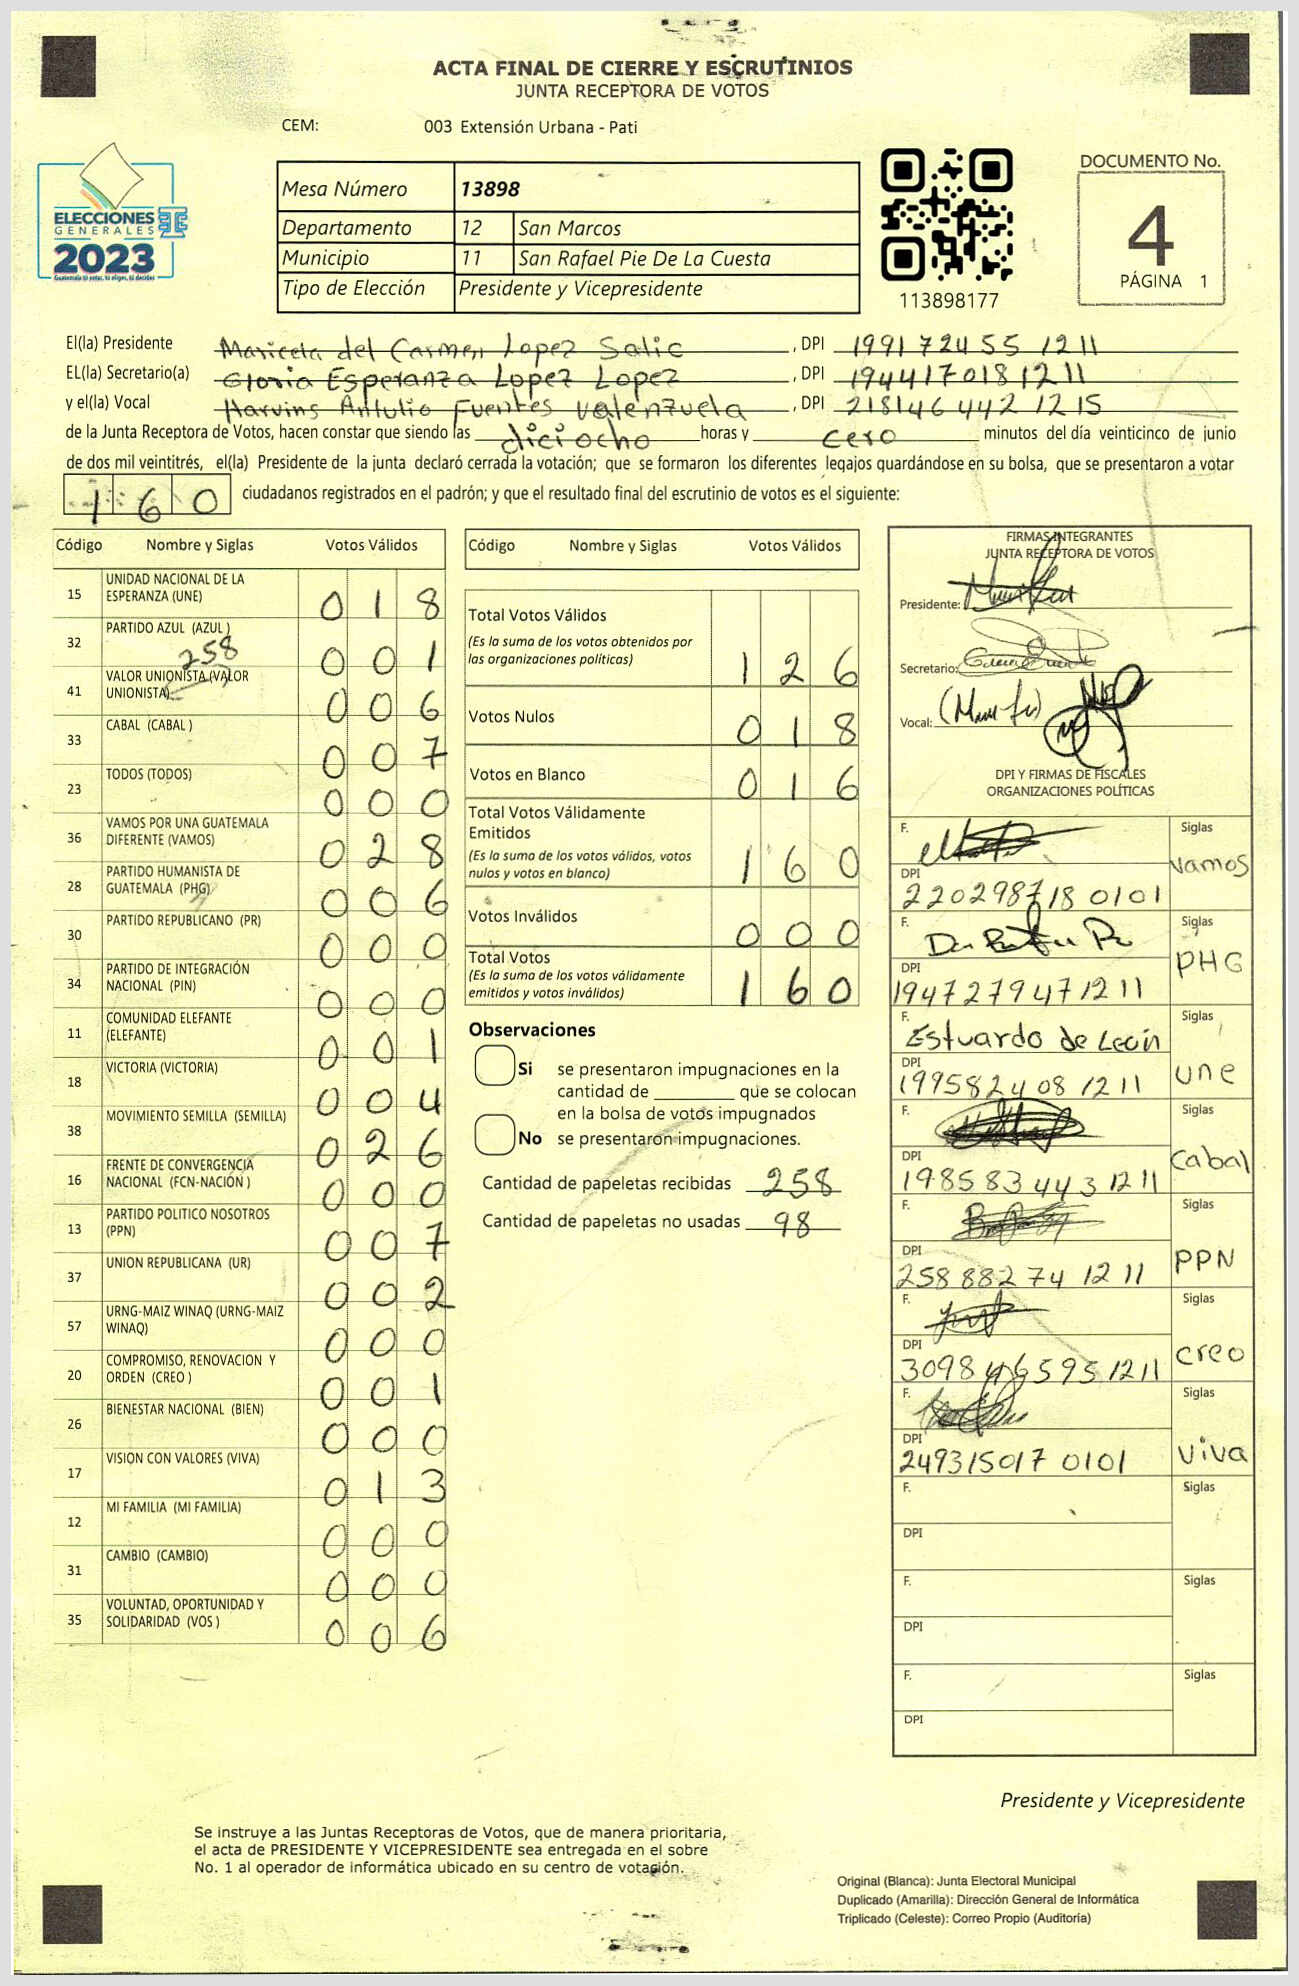 ACTA FINAL DE CIERRE Y ESCRUTINIOS
JUNTA RECEPTORA DE VOTOS
CEM: 003 Extensión Urbana - Pati
ELECCIONES
GENERALES
2023
Mesa Número 13898
Departamento 12 San Marcos
Municipio 11 San Rafael Pie De La Cuesta
Tipo de Elección Presidente y Vicepresidente
113898177
DOCUMENTO No.
4
PÁGINA 1
El(la) Presidente Maricela del Carmen Lopez Salic, DPI 199172455 1211
EL(la) Secretario(a) Gloria Esperanza Lopez Lopez, DPI 194417018 1211
y el(la) Vocal Harvins Antulio Fuentes Valenzuela, DPI 218146442 1215
de la Junta Receptora de Votos, hacen constar que siendo las diciocho horas y cero minutos del día veinticinco de junio
de dos mil veintitrés, el(la) Presidente de la junta declaró cerrada la votación; que se formaron los diferentes legajos guardándose en su bolsa, que se presentaron a votar
160 ciudadanos registrados en el padrón; y que el resultado final del escrutinio de votos es el siguiente:
Código Nombre y Siglas Votos Válidos
15 UNIDAD NACIONAL DE LA ESPERANZA (UNE) 018
32 PARTIDO AZUL (AZUL ) 001
258
41 VALOR UNIONISTA (VALOR UNIONISTA) 006
33 CABAL (CABAL ) 007
23 TODOS (TODOS) 000
36 VAMOS POR UNA GUATEMALA DIFERENTE (VAMOS) 028
28 PARTIDO HUMANISTA DE GUATEMALA (PHG) 006
30 PARTIDO REPUBLICANO (PR) 000
34 PARTIDO DE INTEGRACIÓN NACIONAL (PIN) 000
11 COMUNIDAD ELEFANTE (ELEFANTE) 001
18 VICTORIA (VICTORIA) 004
38 MOVIMIENTO SEMILLA (SEMILLA) 026
16 FRENTE DE CONVERGENCIA NACIONAL (FCN-NACIÓN ) 000
13 PARTIDO POLITICO NOSOTROS (PPN) 007
37 UNION REPUBLICANA (UR) 002
57 URNG-MAIZ WINAQ (URNG-MAIZ WINAQ) 000
20 COMPROMISO, RENOVACION Y ORDEN (CREO ) 001
26 BIENESTAR NACIONAL (BIEN) 000
17 VISION CON VALORES (VIVA) 013
12 MI FAMILIA (MI FAMILIA) 000
31 CAMBIO (CAMBIO) 000
35 VOLUNTAD, OPORTUNIDAD Y SOLIDARIDAD (VOS ) 006
Código Nombre y Siglas Votos Válidos
Total Votos Válidos 126
(Es la suma de los votos obtenidos por
las organizaciones políticas)
Votos Nulos 018
Votos en Blanco 016
Total Votos Válidamente
Emitidos 160
(Es la suma de los votos válidos, votos
nulos y votos en blanco)
Votos Inválidos 000
Total Votos 160
(Es la suma de los votos válidamente
emitidos y votos inválidos)
Observaciones
Si se presentaron impugnaciones en la
cantidad de ________ que se colocan
en la bolsa de votos impugnados
No se presentaron impugnaciones.
Cantidad de papeletas recibidas 258
Cantidad de papeletas no usadas 98
FIRMAS INTEGRANTES
JUNTA RECEPTORA DE VOTOS
Presidente:
Secretario:
Vocal:
DPI Y FIRMAS DE FISCALES
ORGANIZACIONES POLÍTICAS
F. Siglas
Vamos
DPI
220298718 0101
F. Siglas
PHG
DPI
194727947 1211
F. Siglas
Estuardo de León
une
DPI
199582408 1211
F. Siglas
Cabal
DPI
198583443 1211
F. Siglas
PPN
DPI
258888274 1211
F. Siglas
creo
DPI
309846595 1211
F. Siglas
viva
DPI
249315017 0101
F. Siglas
DPI
F. Siglas
DPI
F. Siglas
DPI
Presidente y Vicepresidente
Se instruye a las Juntas Receptoras de Votos, que de manera prioritaria,
el acta de PRESIDENTE Y VICEPRESIDENTE sea entregada en el sobre
No. 1 al operador de informática ubicado en su centro de votación.
Original (Blanca): Junta Electoral Municipal
Duplicado (Amarilla): Dirección General de Informática
Triplicado (Celeste): Correo Propio (Auditoría)